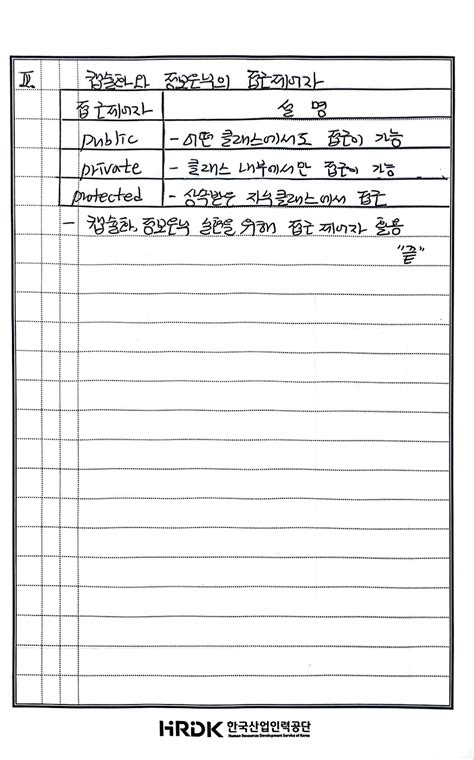 III. 캡슐화와 정보은닉의 접근제어자
접근제어자 설 명
public - 어떤 클래스에서도 접근이 가능
private - 클래스 내부에서만 접근이 가능
protected - 상속받은 자식클래스에서 접근
- 캡슐화, 정보은닉 실현을 위해 접근 제어자 활용
"끝"
HRDK 한국산업인력공단
Human Resources Development Service of Korea